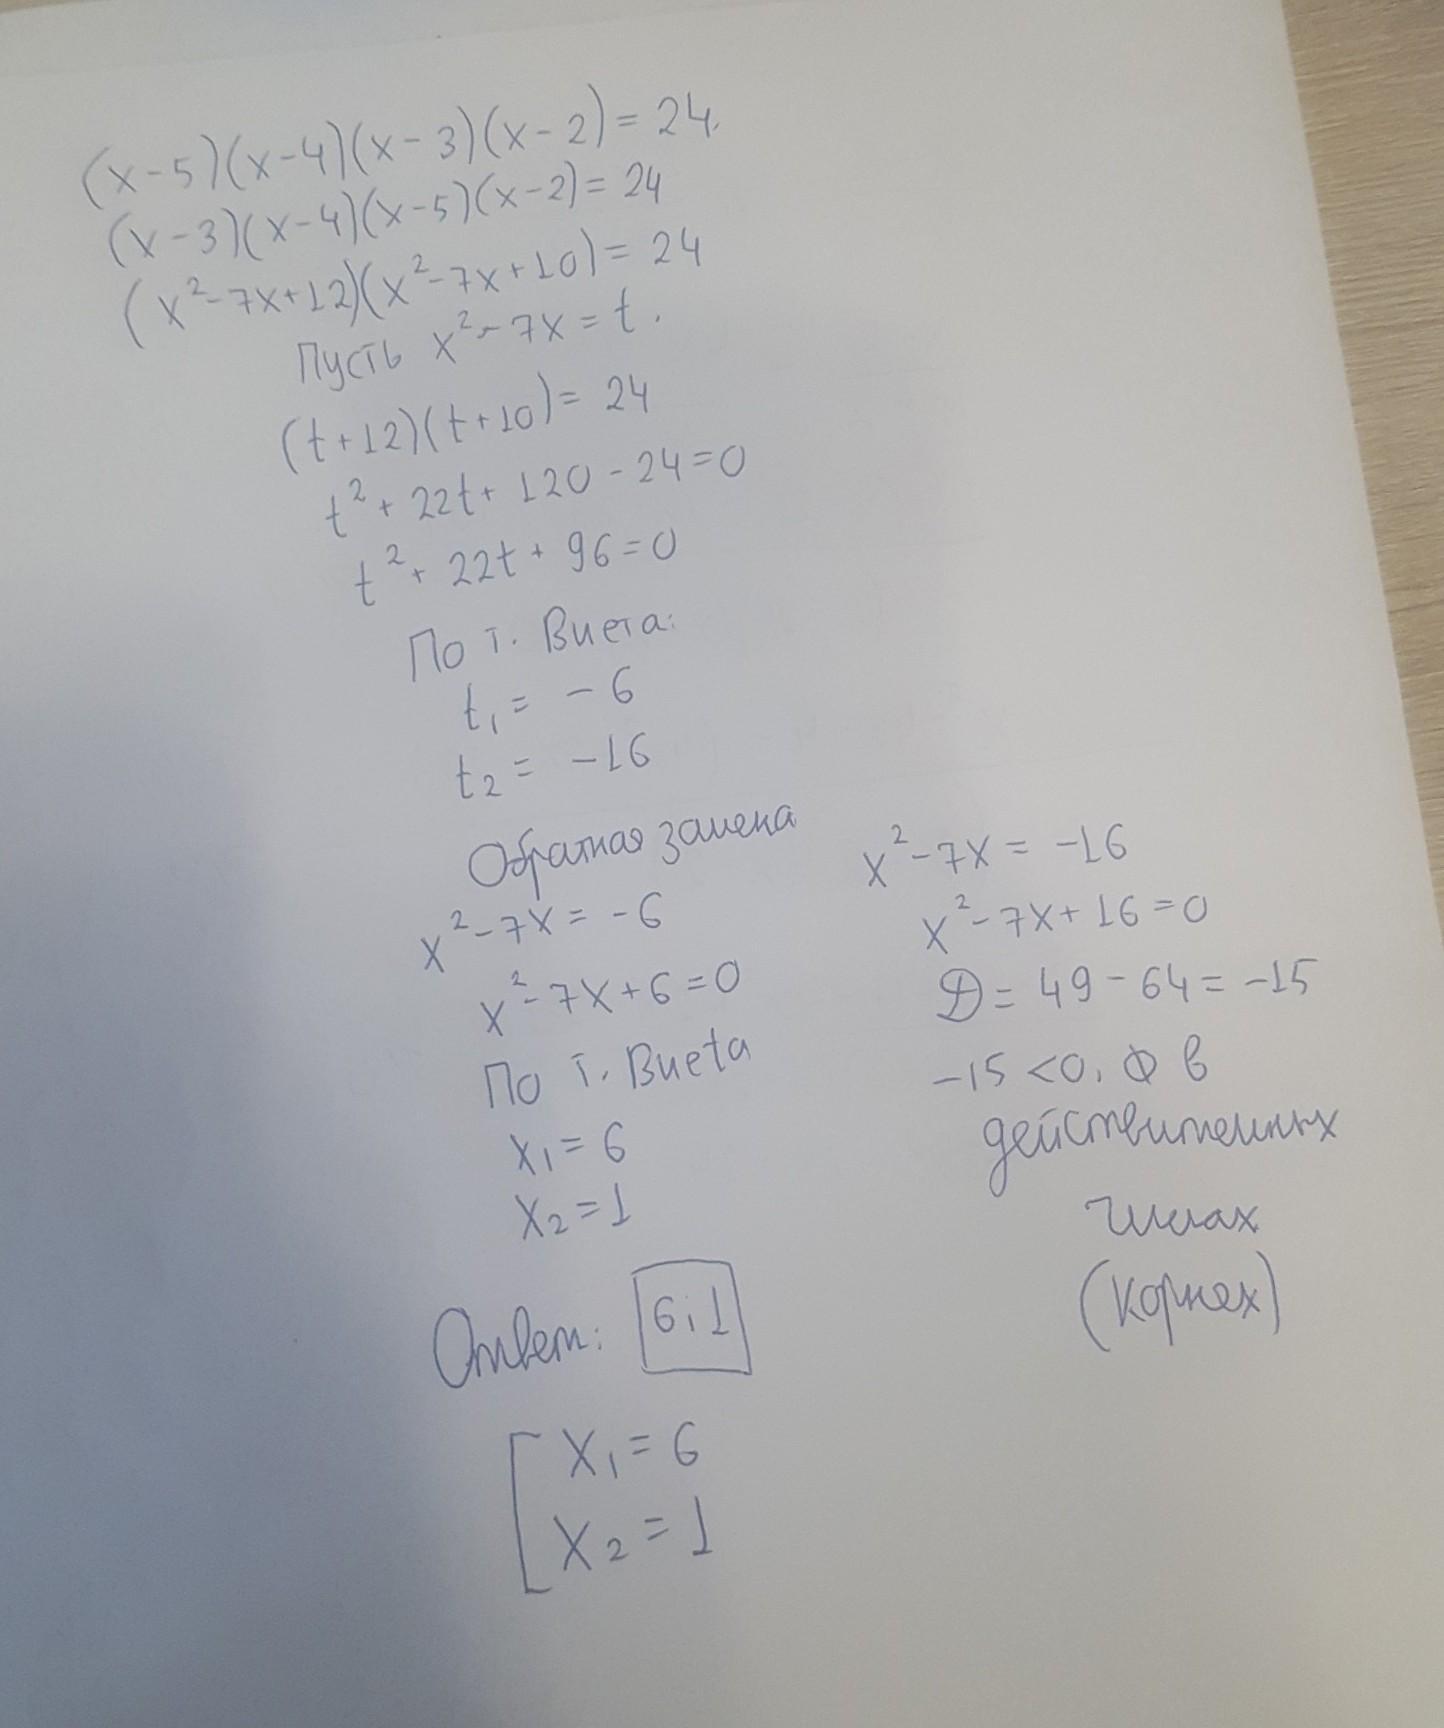 (x-5)(x-4)(x-3)(x-2)=24.
(x-3)(x-4)(x-5)(x-2)=24
(x²-7x+12)(x²-7x+10)=24
Пусть x²-7x=t.
(t+12)(t+10)=24
t²+22t+120-24=0
t²+22t+96=0
По т. Виета:
t₁=-6
t₂=-16
Обратная замена
x²-7x=-6
x²-7x+6=0
По т. Виета
x₁=6
x₂=1
x²-7x=-16
x²-7x+16=0
D=49-64=-15
-15<0, ф в
действительных
числах
(корнех)
Ответ: 6;1
[x₁=6
x₂=1